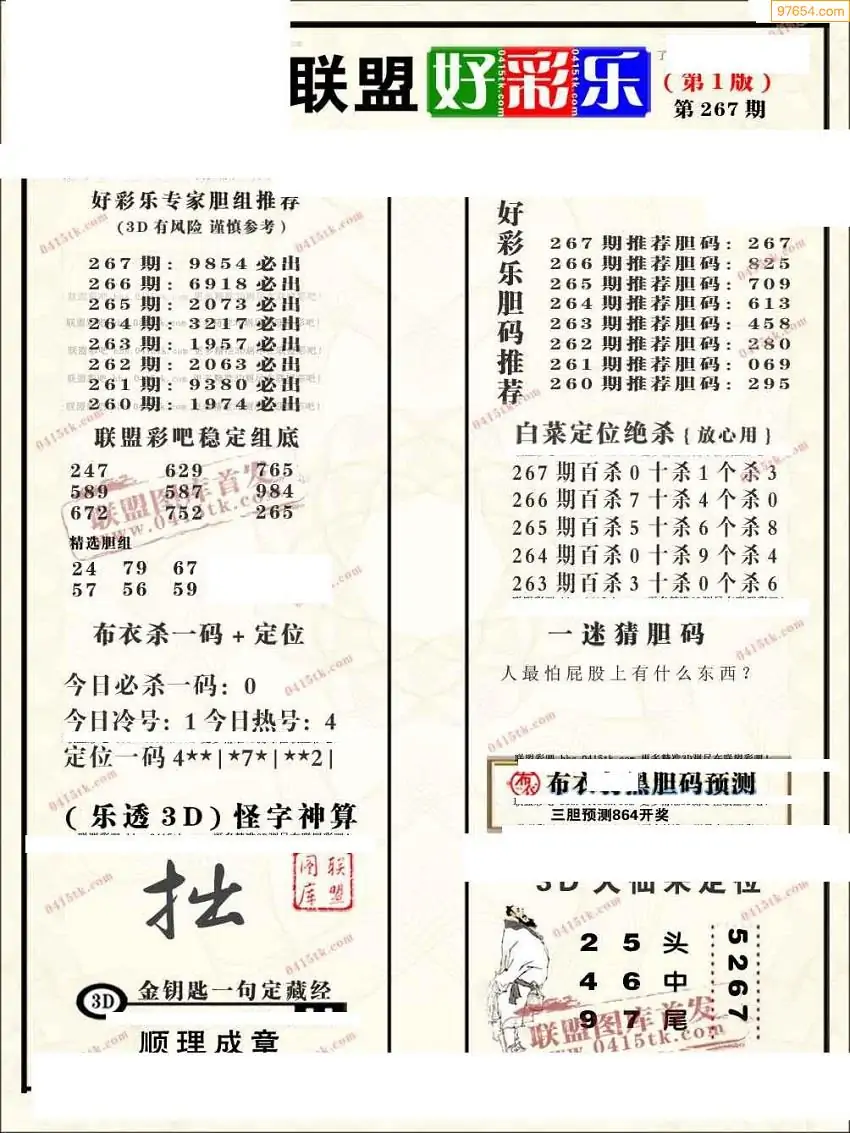 97654.com
联盟 好彩乐
(第1版)
第267期
好彩乐专家胆组推荐
(3D有风险 谨慎参考)
267期: 9854必出
266期: 6918必出
265期: 2073必出
264期: 3217必出
263期: 1957必出
262期: 2063必出
261期: 9380必出
260期: 1974必出
联盟彩吧稳定组底
247 629 765
589 587 984
672 752 265
联盟图库首发
www.0415tk.com
精选胆组
24 79 67
57 56 59
布衣杀一码+定位
今日必杀一码: 0
今日冷号: 1 今日热号: 4
定位一码 4**|*7*|**2|
(乐透3D)怪字神算
拙
联盟图库
3D 金钥匙一句定藏经
顺理成章
好彩乐胆码推荐
267期推荐胆码: 267
266期推荐胆码: 825
265期推荐胆码: 709
264期推荐胆码: 613
263期推荐胆码: 458
262期推荐胆码: 280
261期推荐胆码: 069
260期推荐胆码: 295
白菜定位绝杀{放心用}
267期百杀0十杀1个杀3
266期百杀7十杀4个杀0
265期百杀5十杀6个杀8
264期百杀0十杀9个杀4
263期百杀3十杀0个杀6
一迷猜胆码
人最怕屁股上有什么东西?
胆码预测
三胆预测864开奖
2 5 头
4 6 中
9 7 尾
5267
联盟图库首发
www.0415tk.com